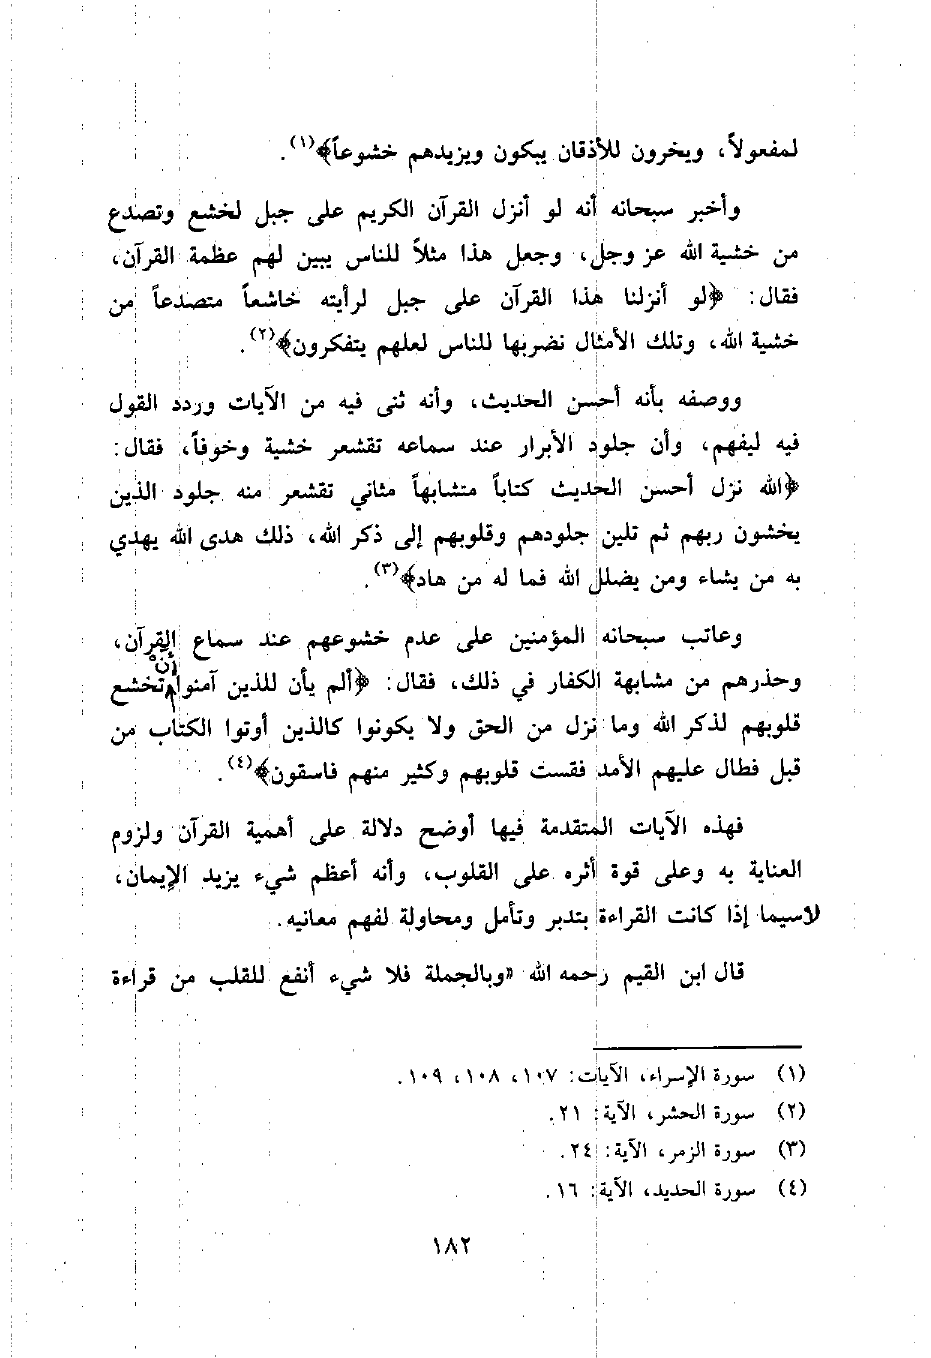 لمفعولاً، ويخرون للأذقان يبكون ويزيدهم خشوعاً﴾(١).
وأخبر سبحانه أنه لو أنزل القرآن الكريم على جبل لخشع وتصدع
من خشية الله عز وجل، وجعل هذا مثلاً للناس يبين لهم عظمة القرآن،
فقال: ﴿لو أنزلنا هذا القرآن على جبل لرأيته خاشعاً متصدعاً من
خشية الله، وتلك الأمثال نضربها للناس لعلهم يتفكرون﴾(٢).
ووصفه بأنه أحسن الحديث، وأنه ثنى فيه من الآيات وردد القول
فيه ليفهم، وأن جلود الأبرار عند سماعه تقشعر خشية وخوفاً، فقال:
﴿الله نزل أحسن الحديث كتاباً متشابهاً مثاني تقشعر منه جلود الذين
يخشون ربهم ثم تلين جلودهم وقلوبهم إلى ذكر الله، ذلك هدى الله يهدي
به من يشاء ومن يضلل الله فما له من هاد﴾(٣).
وعاتب سبحانه المؤمنين على عدم خشوعهم عند سماع القرآن،
وحذرهم من مشابهة الكفار في ذلك، فقال: ﴿ألم يأن للذين آمنوا أن تخشع
قلوبهم لذكر الله وما نزل من الحق ولا يكونوا كالذين أوتوا الكتاب من
قبل فطال عليهم الأمد فقست قلوبهم وكثير منهم فاسقون﴾(٤).
فهذه الآيات المتقدمة فيها أوضح دلالة على أهمية القرآن ولزوم
العناية به وعلى قوة أثره على القلوب، وأنه أعظم شيء يزيد الإيمان،
لاسيما إذا كانت القراءة بتدبر وتأمل ومحاولة لفهم معانيه.
قال ابن القيم رحمه الله «وبالجملة فلا شيء أنفع للقلب من قراءة
(١) سورة الإسراء، الآيات: ١٠٧، ١٠٨، ١٠٩.
(٢) سورة الحشر، الآية: ٢١.
(٣) سورة الزمر، الآية: ٢٤.
(٤) سورة الحديد، الآية: ١٦.
١٨٢